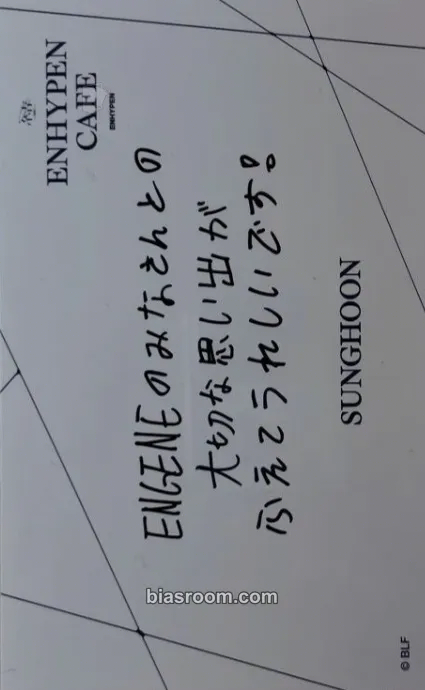 ENHYPEN
CAFE
ENHYPEN
ENGENEのみなさんとの
大切な思い出が
ふえてうれしいです!
SUNGHOON
© BLF
biasroom.com